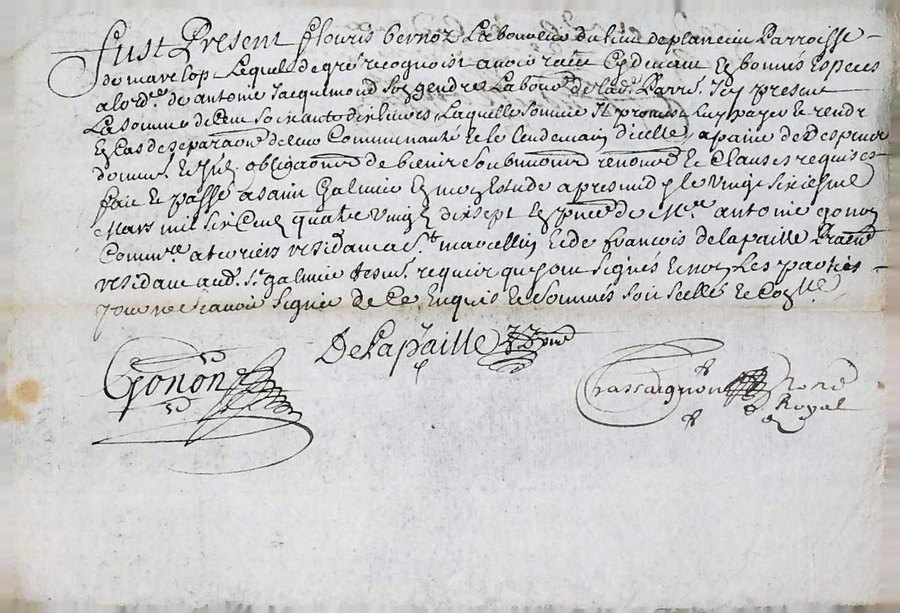 Fust Present fleuris bernoz Laboureur du lieu de planeciu Parroisse
de marclopt Lequel de gré recognoist avoir receu cy devant En bonnes Especes
a lord.re de antoine Jacquemond son gendre Labour. de lad. Parr. Icy present
La somme de Cent soixante dix livres Laquelle somme Il promet Luy payer et rendre
En cas de separa.on de leur Communauté et le Lendemain d'icelle, a paine de despens
domm. obliga.on de biens soubmi.on renon.on et Clauses requises
fait et passé a saint Galmier En mon Estude apres midy le vingt sixiesme
Mars mil six Cent quatre vingt dix sept En p.nce de M.re antoine gonon
Comm.re a terriers residant a S.t marcellin et de françois delapaille
residant aud. S.t galmier tesm. requis qui sont signés Et non Les parties
pour ne scavoir signer de Ce Enquis Et sommés soit scellé
Gonon
Delapaille
Chassaignon No.re
Royal